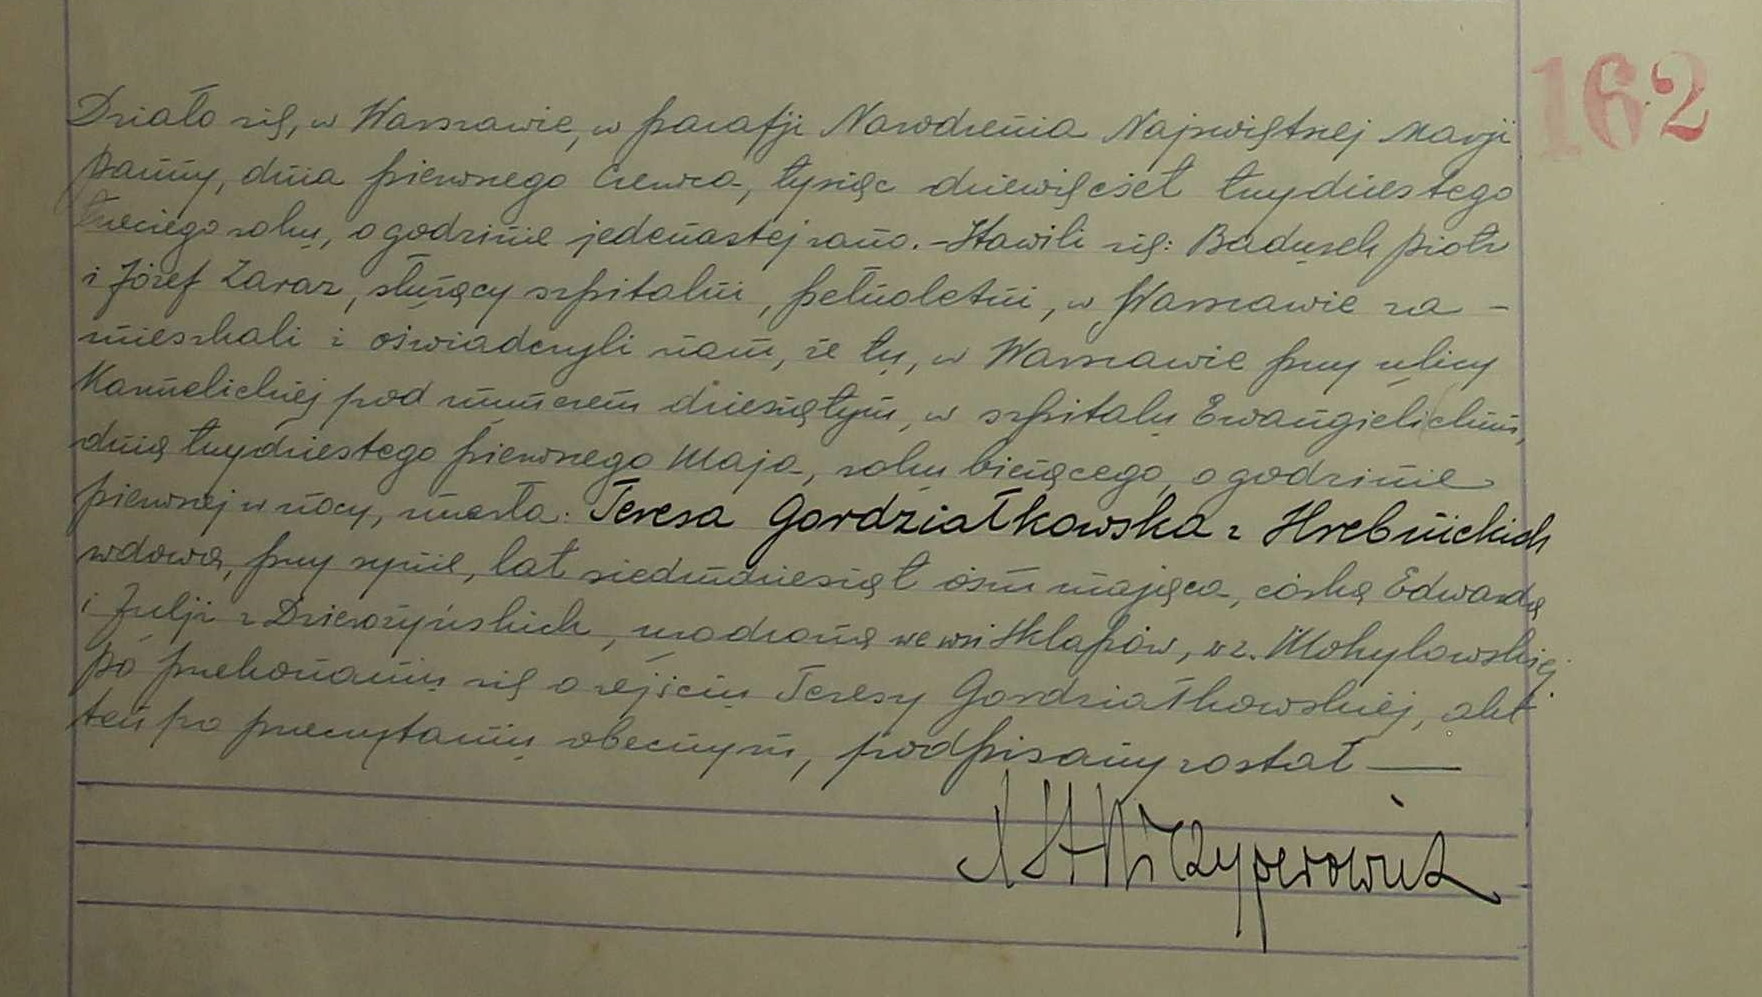 162
Działo się, w Warszawie, w parafji Narodzenia Najświętszej Marji
Panny, dnia pierwszego Czerwca, tysiąc dziewięćset trzydziestego
trzeciego roku, o godzinie jedenastej rano. - Stawili się: Badurek Piotr
i Józef Zaraz, służący szpitalni, pełnoletni, w Warszawie za -
mieszkali i oświadczyli nam, że tu, w Warszawie przy ulicy
Karmelickiej pod numerem dziesiątym, w szpitalu Ewangielickim,
dnia trzydziestego pierwszego Maja, roku bieżącego, o godzinie
pierwszej w nocy, zmarła: Teresa Gordziałkowska z Hrebnickich
wdowa, przy synie, lat siedmdziesiąt ośm mająca, córka Edwarda
i Julji z Dzierożyńskich, urodzona we wsi Sklapów, z. Mohylowskiej
po przekonaniu się o zejściu Teresy Gordziałkowskiej, akt
ten po przeczytaniu obecnym, podpisany został —